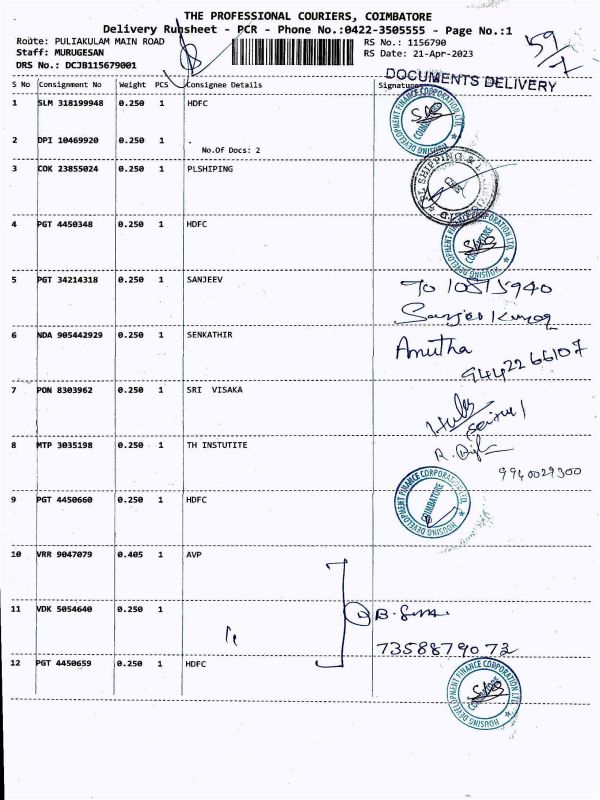 THE PROFESSIONAL COURIERS, COIMBATORE
Delivery Runsheet - PCR - Phone No.:0422-3505555 - Page No.:1
Route: PULIAKULAM MAIN ROAD RS No.: 1156790
Staff: MURUGESAN RS Date: 21-Apr-2023
DRS No.: DCJB115679001
59/7
DOCUMENTS DELIVERY
S No Consignment No Weight PCS Consignee Details Signature
1 SLM 318199948 0.250 1 HDFC
HOUSING DEVELOPMENT FINANCE CORPORATION LTD. COIMBATORE
2 DPI 10469920 0.250 1 .
No.Of Docs: 2
3 COK 23855024 0.250 1 PLSHIPING
SHIPPING & L
4 PGT 4450348 0.250 1 HDFC
HOUSING DEVELOPMENT FINANCE CORPORATION LTD. COIMBATORE
5 PGT 34214318 0.250 1 SANJEEV
6 NDA 905442929 0.250 1 SENKATHIR Amutha
7 PON 8303962 0.250 1 SRI VISAKA
8 MTP 3035198 0.250 1 TH INSTUTITE
9940029300
9 PGT 4450660 0.250 1 HDFC
HOUSING DEVELOPMENT FINANCE CORPORATION LTD. COIMBATORE
10 VRR 9047079 0.405 1 AVP
11 VDK 5054640 0.250 1
7358879072
12 PGT 4450659 0.250 1 HDFC
HOUSING DEVELOPMENT FINANCE CORPORATION LTD. COIMBATORE